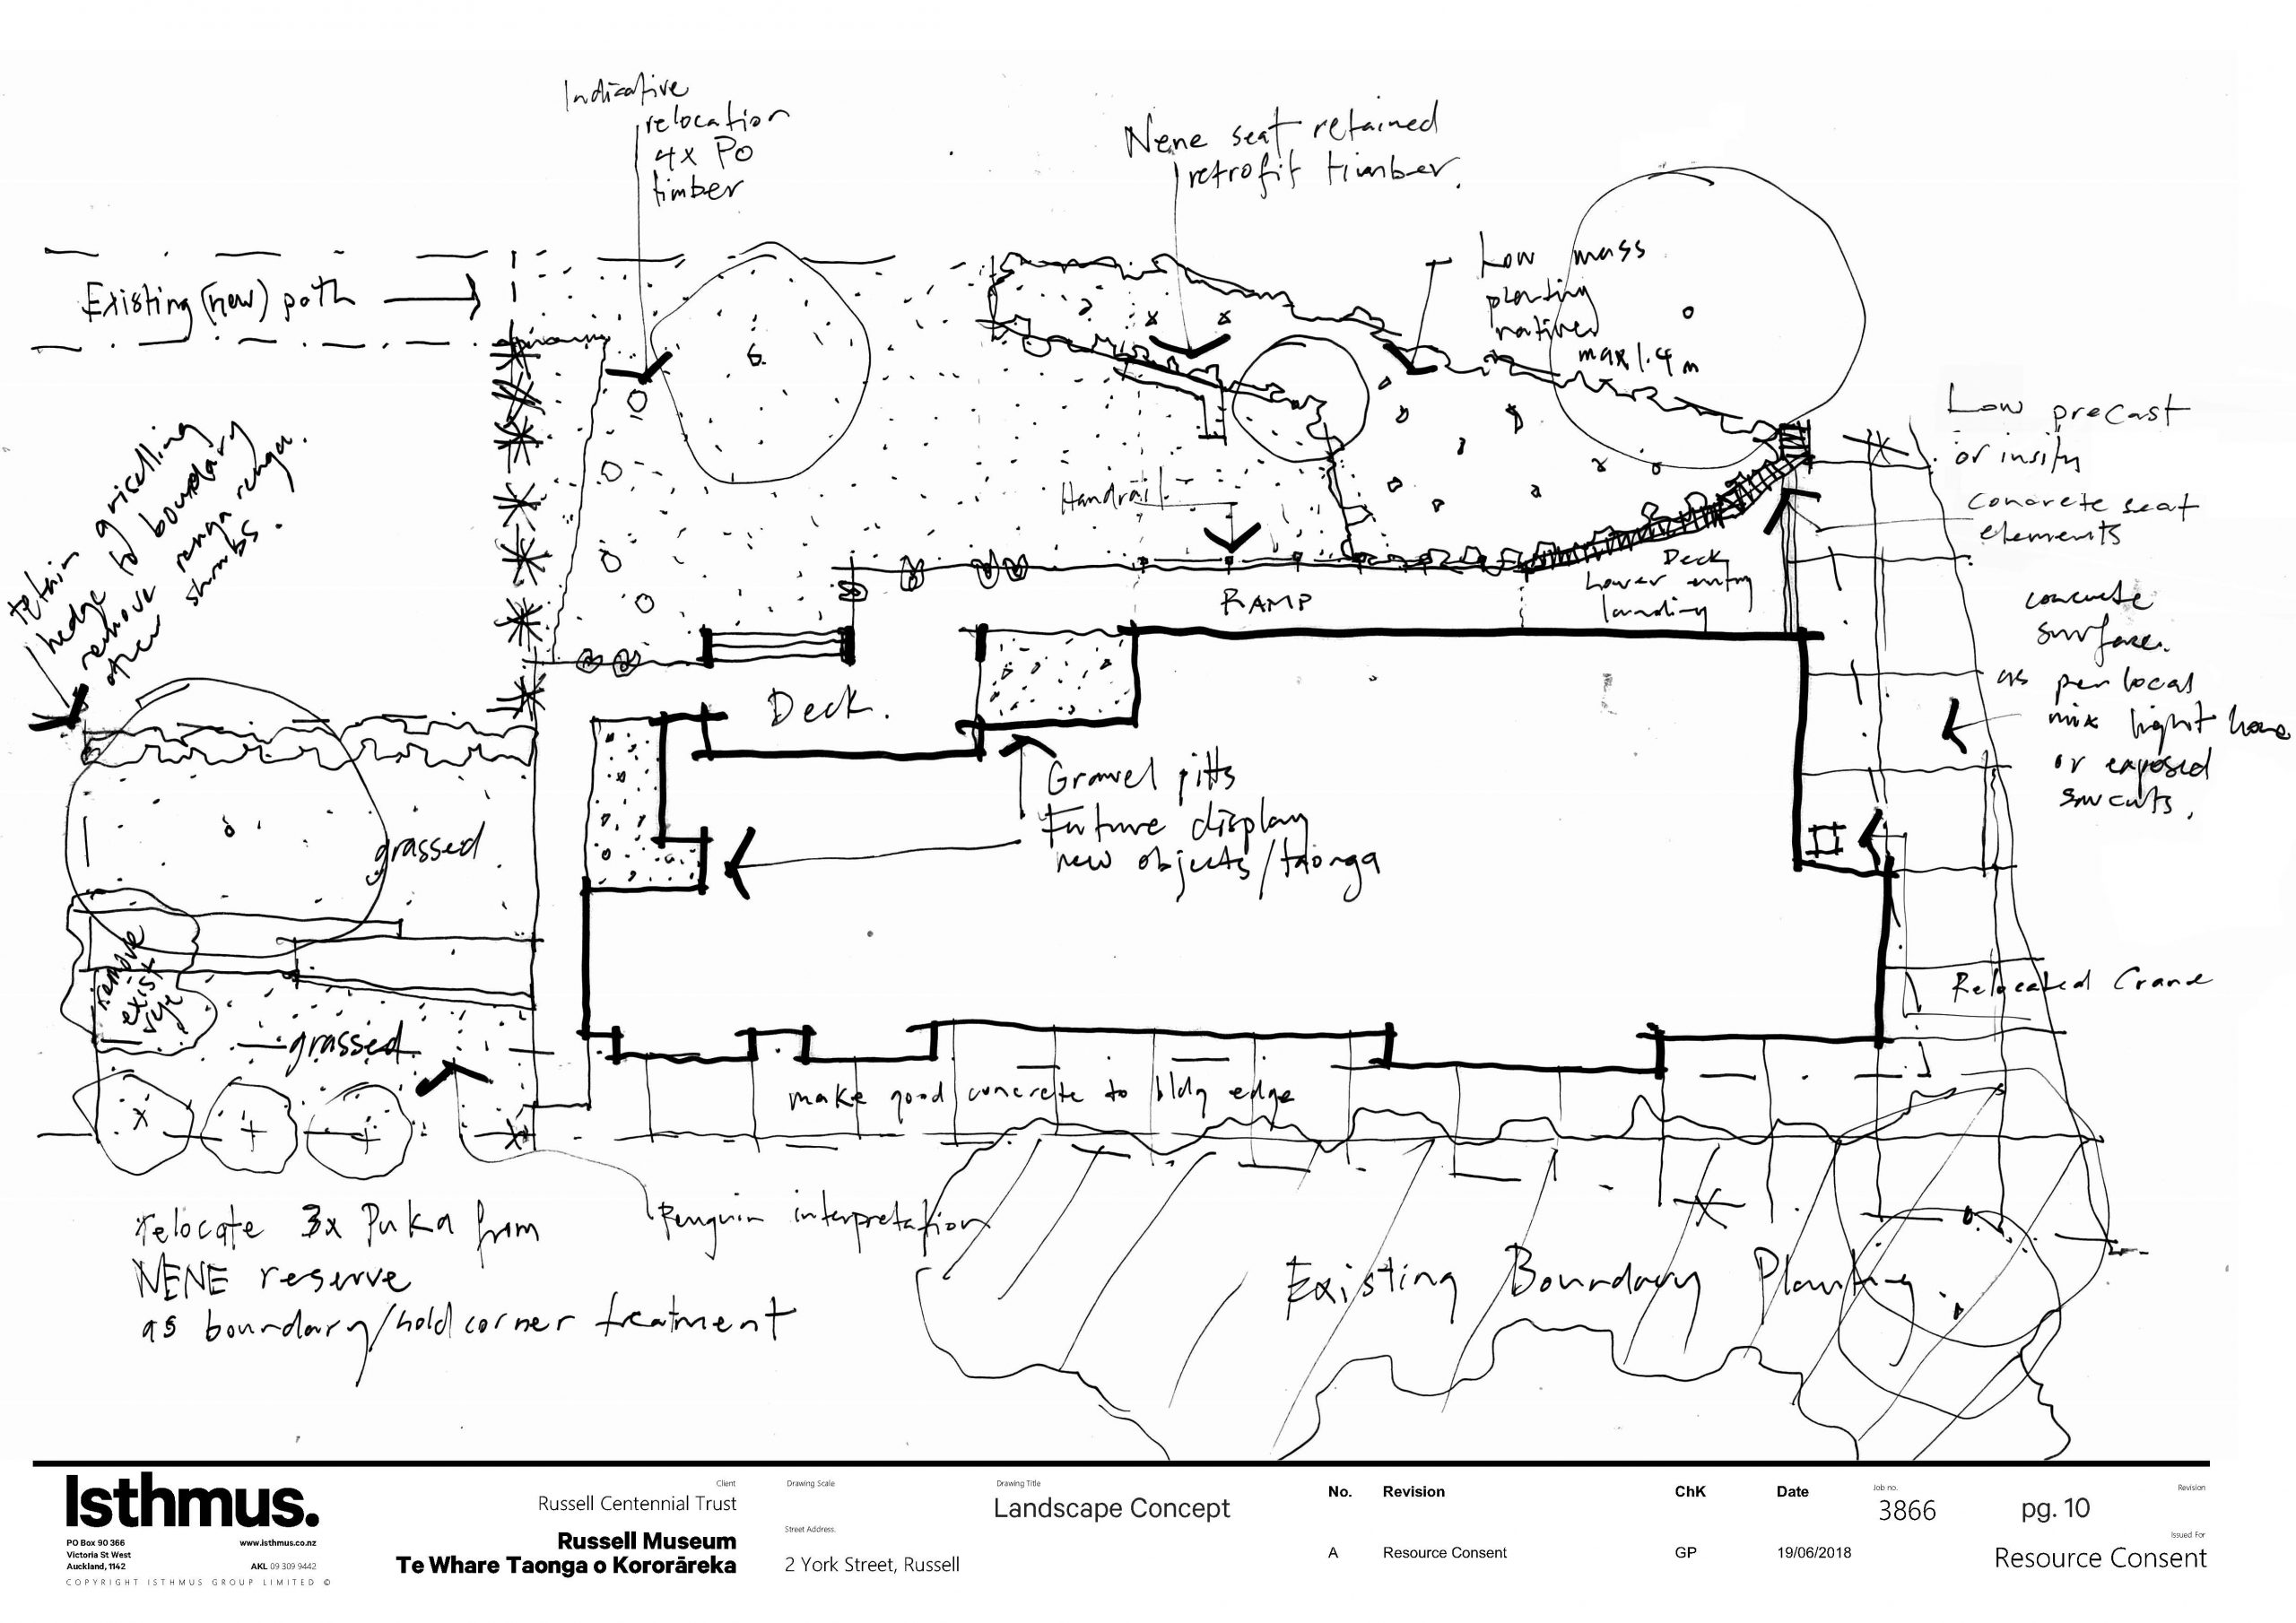 Indicative
relocation
4x Po
timber
Nene seat retained
retrofit timber.
Low mass
planting
natives
max 1.4 m
Existing (new) path
Low precast
or insitu
concrete seat
elements
retain griselling
hedge to boundary
remove renga renga.
other shrubs.
Handrail
RAMP
Deck
Lower entry
landing
concrete
surface.
as per local
mix light
or exposed
sawcuts.
Deck.
Gravel pitts
Future display
new objects/taonga
grassed
remove
exist
grassed
Relocated Crane
make good concrete to bldg edge
relocate 3x Puka from
NENE reserve
as boundary/hold corner treatment
Penguin interpretation
Existing Boundary Planting.
Isthmus.
PO Box 90 366
Victoria St West
Auckland, 1142
www.isthmus.co.nz
AKL 09 309 9442
COPYRIGHT ISTHMUS GROUP LIMITED ©
Client
Russell Centennial Trust
Russell Museum
Te Whare Taonga o Kororāreka
Drawing Scale
Street Address.
2 York Street, Russell
Drawing Title
Landscape Concept
No. Revision ChK Date
A Resource Consent GP 19/06/2018
Job no.
3866
Revision
pg. 10
Issued For
Resource Consent